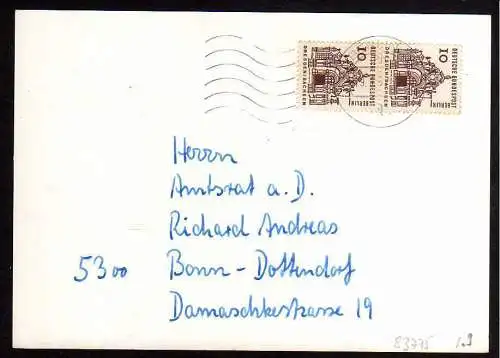 10
DEUTSCHE BUNDESPOST
BERLIN
DRESDEN/SACHSEN
10
DEUTSCHE BUNDESPOST
BERLIN
DRESDEN/SACHSEN
Herrn
Amtsrat a. D.
Richard Andreas
5300 Bonn-Dottendorf
Damaschkestrasse 19
E3775